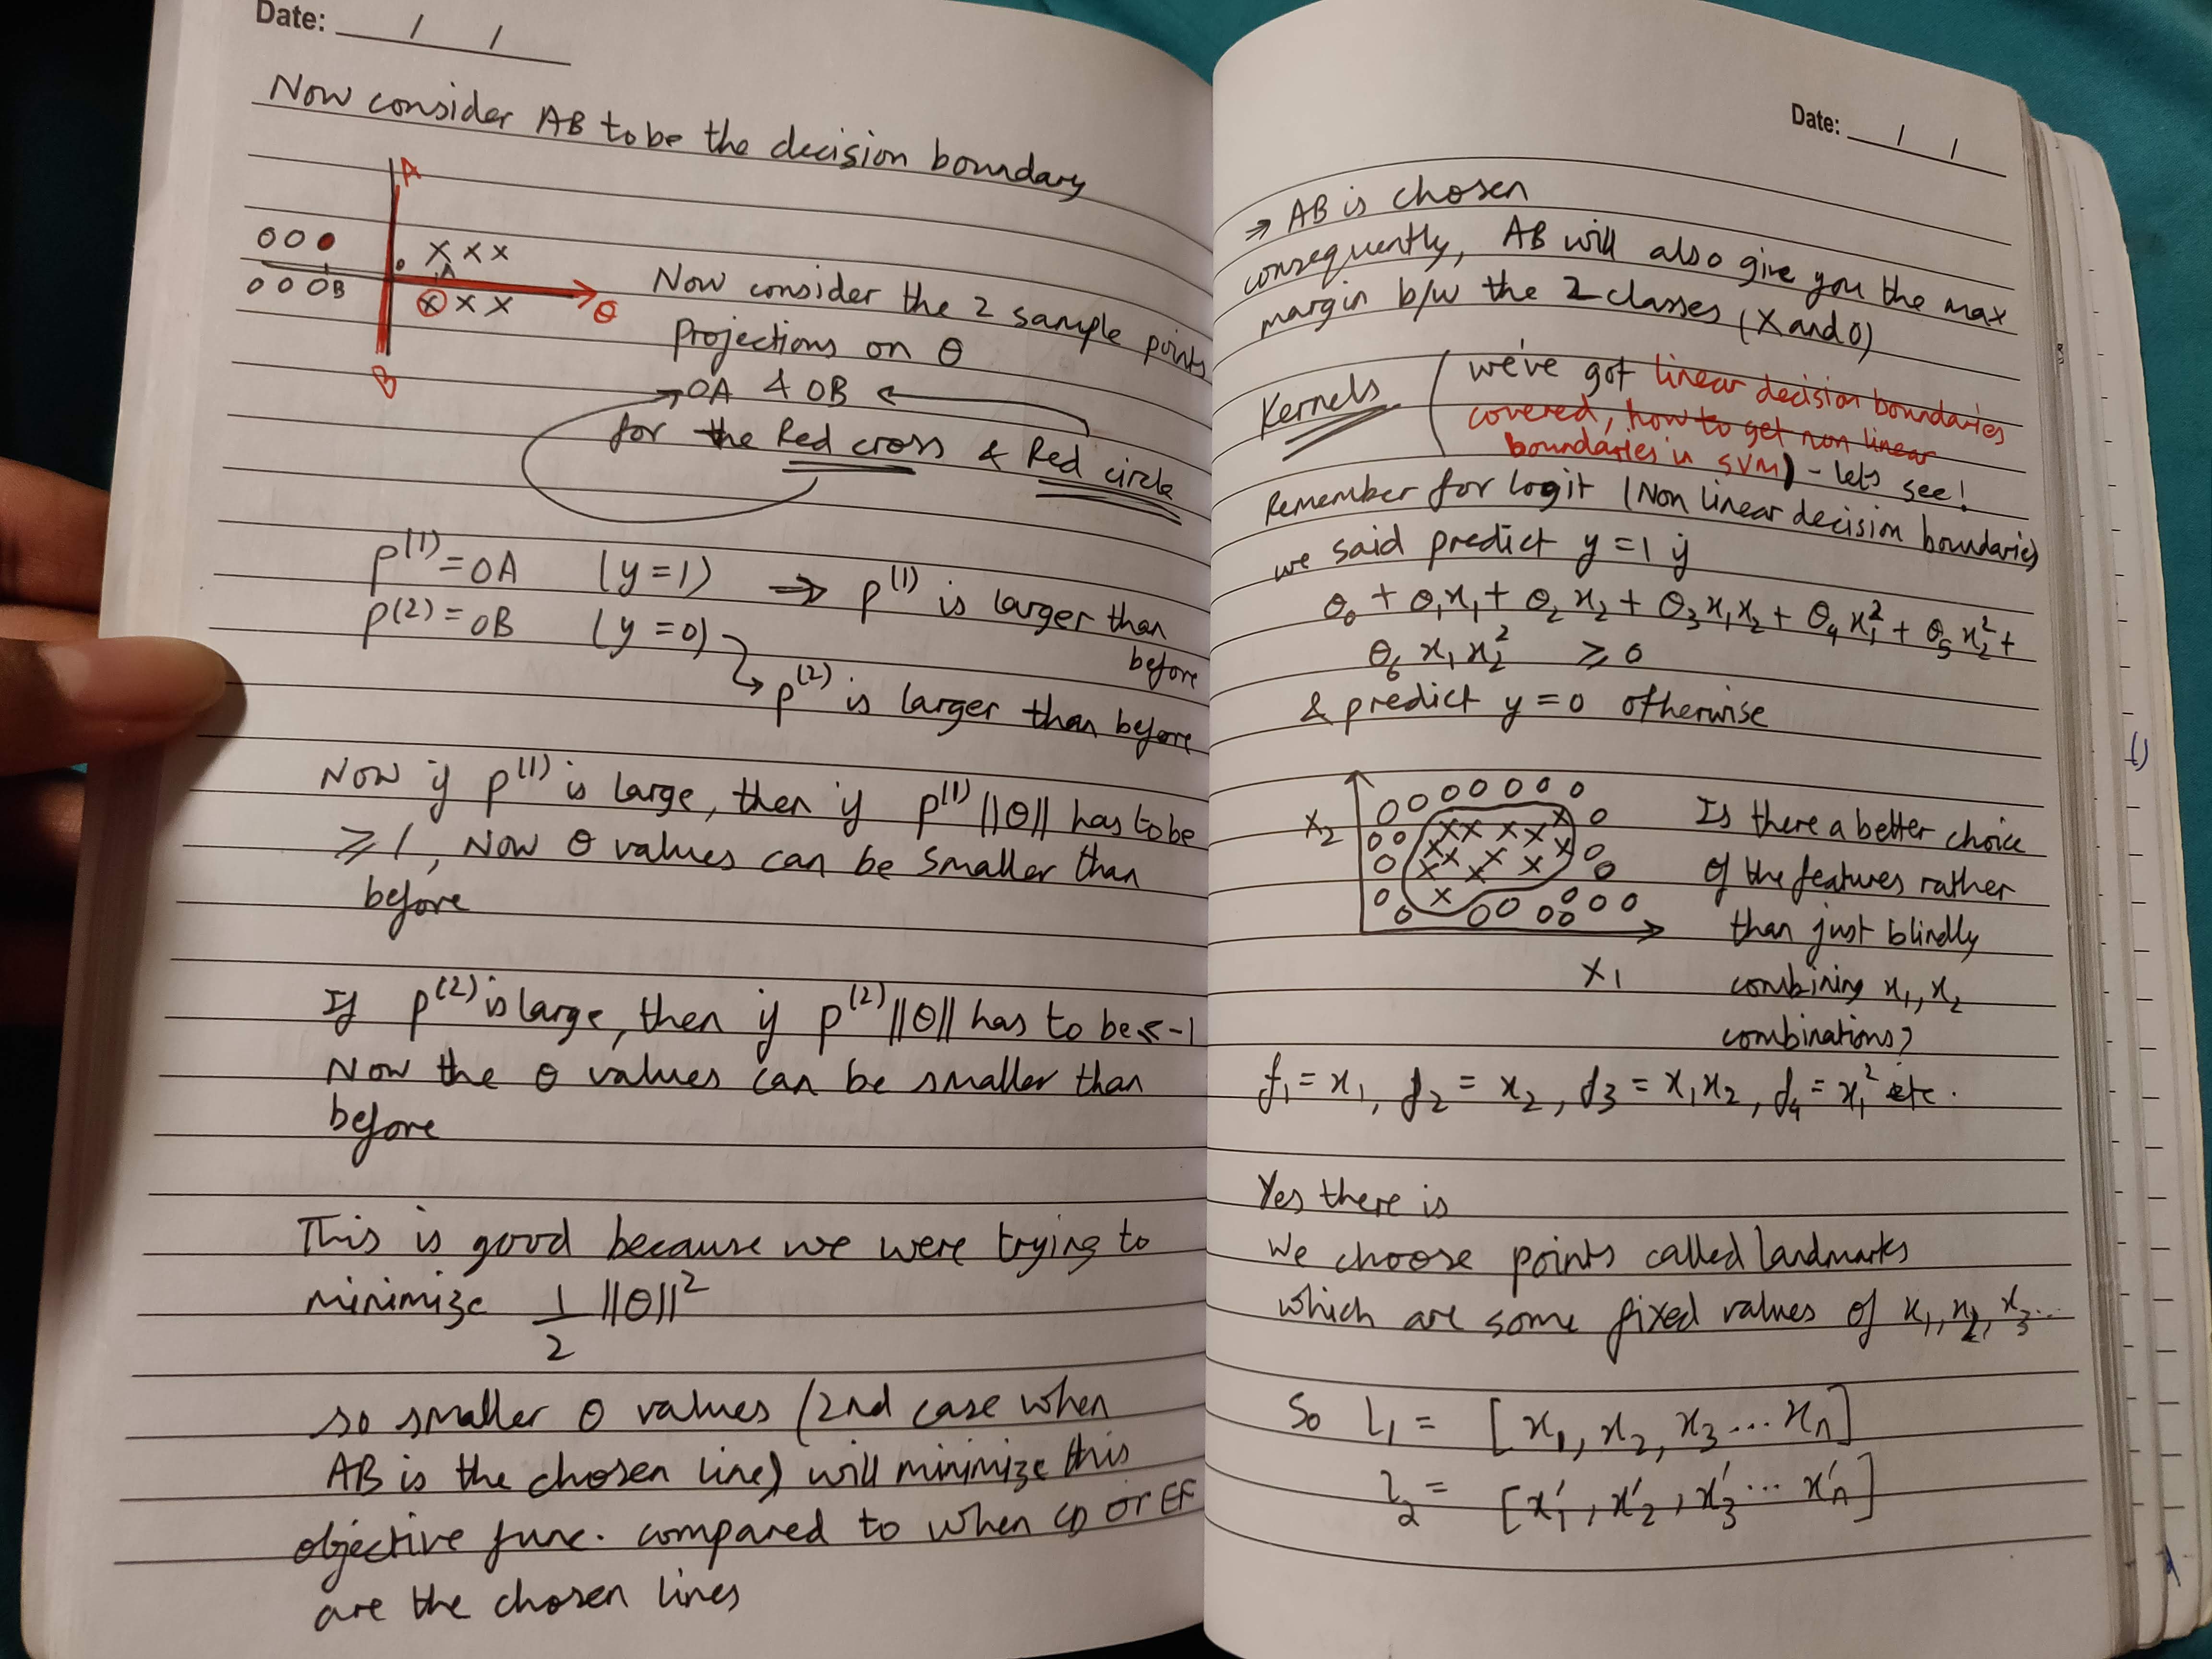 Date: / /
Now consider AB to be the decision boundary
A
O O
X X X
O
A
O O O B
X X X
θ
B
Now consider the 2 sample points
projections on θ
OA & OB
for the Red cross & Red circle
p(1) = OA (y=1) ⇒ p(1) is larger than
before
p(2) = OB (y=0)
p(2) is larger than before
Now if p(1) is large, then if p(1) ||θ|| has to be
≥ 1, Now θ values can be smaller than
before
If p(2) is large, then if p(2) ||θ|| has to be ≤ -1
Now the θ values can be smaller than
before
This is good because we were trying to
minimize 1/2 ||θ||²
so smaller θ values (2nd case when
AB is the chosen line) will minimize this
objective func. compared to when CD or EF
are the chosen lines
Date: / /
⇒ AB is chosen
consequently, AB will also give you the max
margin b/w the 2 classes (X and O)
Kernels
(we've got linear decision boundaries
covered, how to get non linear
boundaries in SVM) - lets see!
Remember for logit (Non linear decision boundaries
we said predict y = 1 if
θ₀ + θ₁x₁ + θ₂x₂ + θ₃x₁x₂ + θ₄x₁² + θ₅x₂² +
θ₆x₁x₂² ≥ 0
& predict y = 0 otherwise
X₂
X₁
Is there a better choice
of the features rather
than just blindly
combining x₁, x₂
combinations?
f₁ = x₁, f₂ = x₂, f₃ = x₁x₂, f₄ = x₁² etc.
Yes there is
We choose points called landmarks
which are some fixed values of x₁, x₂, x₃...
So L₁ = [x₁, x₂, x₃ ... xₙ]
l₂ = [x₁', x₂', x₃' ... xₙ']